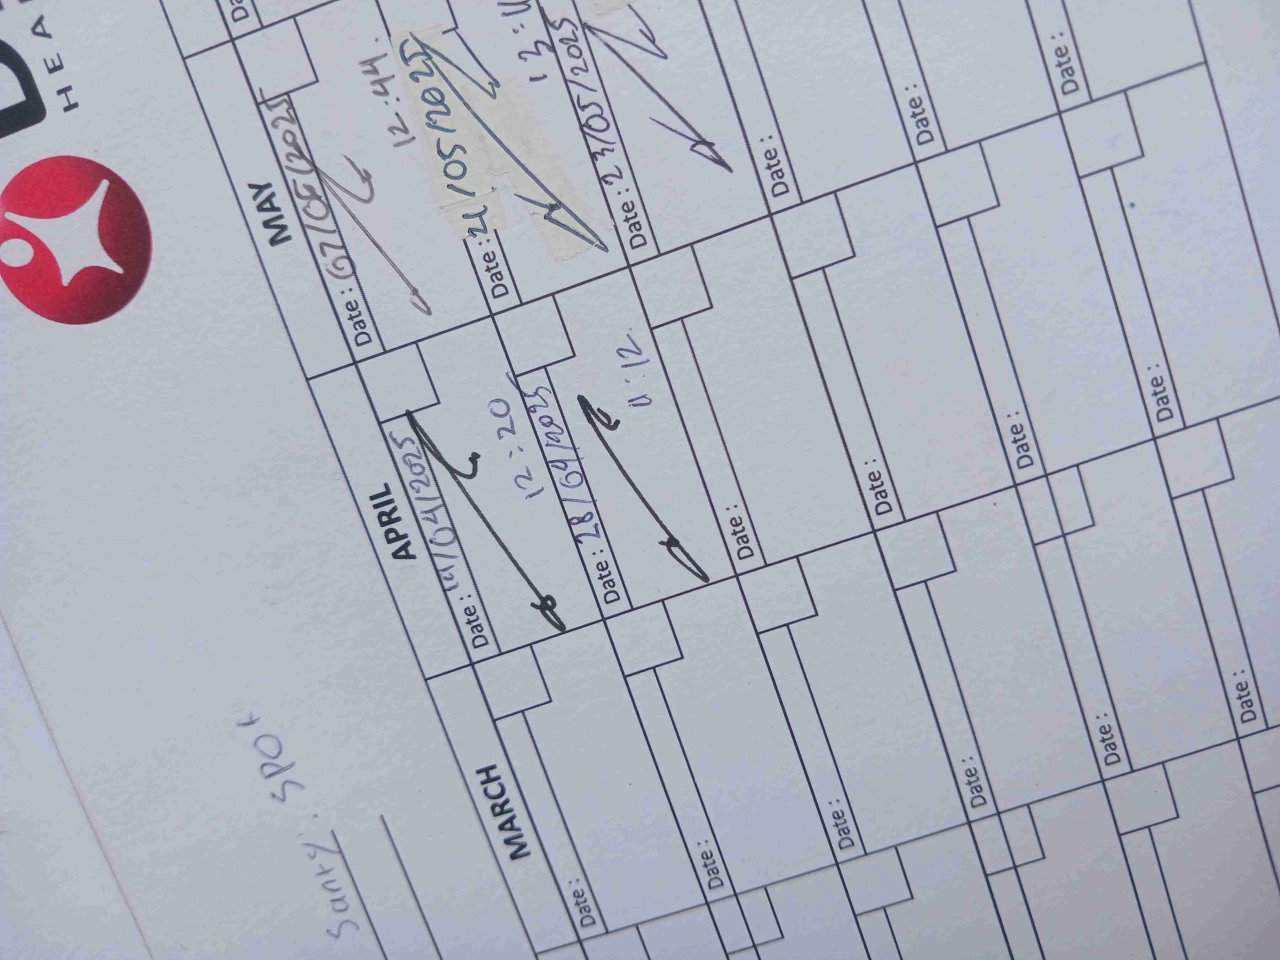 HEA
Santy: SPOt
MARCH
APRIL
MAY
Date:
Date: 14/04/2025
12:20
Date: 07/05/2025
12:44.
Date:
Date: 28/04/2025
11:12
Date: 21/05/2025
Date:
Date:
Date: 23/05/2025
Date:
Date:
Date:
Date:
Date:
Date:
Date:
Date:
Date: